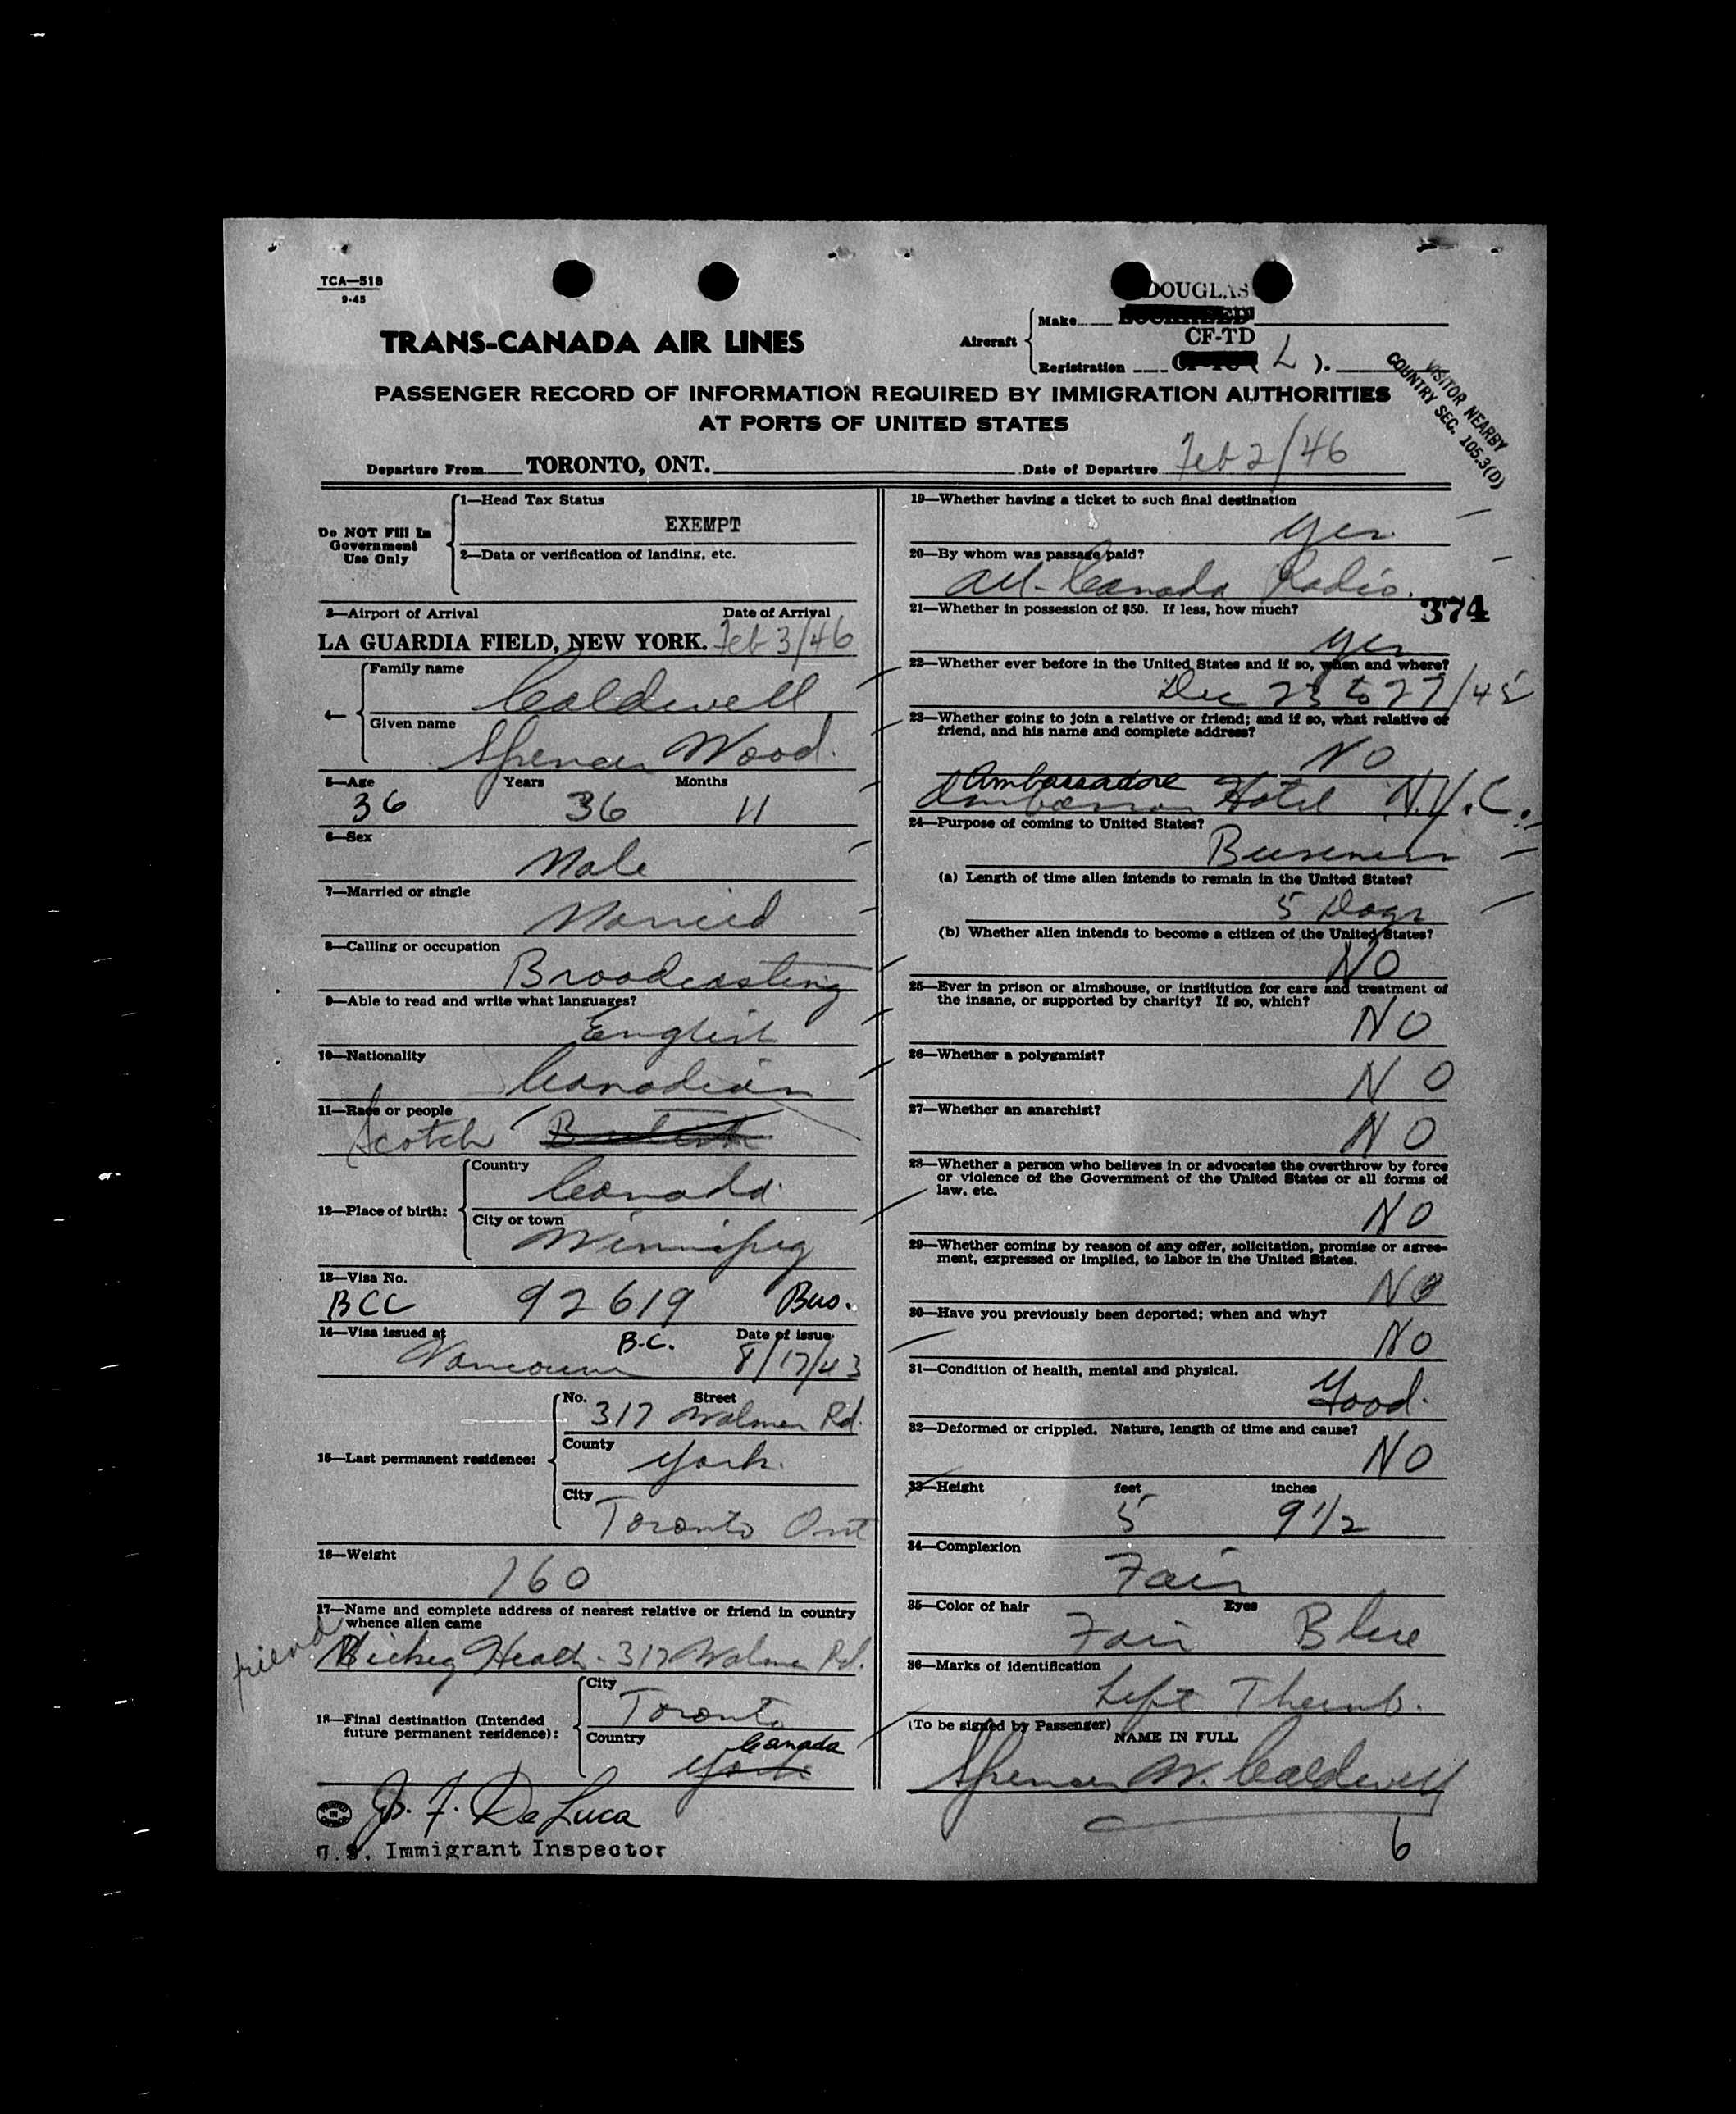 TCA—518
9-45
DOUGLAS
Aircraft
Make
CF-TD
Registration
L ).
TRANS-CANADA AIR LINES
VISITOR NEARBY
COUNTRY SEC. 105.3(D)
PASSENGER RECORD OF INFORMATION REQUIRED BY IMMIGRATION AUTHORITIES
AT PORTS OF UNITED STATES
Departure From TORONTO, ONT. Date of Departure Feb 2/46
Do NOT Fill In
Government
Use Only
1—Head Tax Status
EXEMPT
2—Data or verification of landing, etc.
3—Airport of Arrival Date of Arrival
LA GUARDIA FIELD, NEW YORK. Feb 3/46
4—
Family name
Caldwell
Given name
Spencer Wood.
5—Age Years Months
36 36 11
6—Sex
Male
7—Married or single
Married
8—Calling or occupation
Broadcasting
9—Able to read and write what languages?
English
10—Nationality
Canadian
11—Race or people
Scotch British
12—Place of birth:
Country
Canada
City or town
Winnipeg
13—Visa No.
BCC 92619 Bus.
14—Visa issued at Date of issue
Vancouver B.C. 8/17/43
15—Last permanent residence:
No. Street
317 Walmer Rd.
County
York.
City
Toronto Ont
16—Weight
160
17—Name and complete address of nearest relative or friend in country
whence alien came
friend
Heath - 317 Walmer Rd.
18—Final destination (Intended
future permanent residence):
City
Toronto
Country
Canada
York
Jr. F. De Luca
U.S. Immigrant Inspector
PRINTED
IN
CANADA
19—Whether having a ticket to such final destination
yes
20—By whom was passage paid?
All-Canada Radio.
21—Whether in possession of $50. If less, how much?
374
yes
22—Whether ever before in the United States and if so, when and where?
Dec 23 to 27/45
23—Whether going to join a relative or friend; and if so, what relative or
friend, and his name and complete address?
NO
Ambassadore
Hotel N.Y.C.
24—Purpose of coming to United States?
Business
(a) Length of time alien intends to remain in the United States?
5 Days
(b) Whether alien intends to become a citizen of the United States?
NO
25—Ever in prison or almshouse, or institution for care and treatment of
the insane, or supported by charity? If so, which?
NO
26—Whether a polygamist?
NO
27—Whether an anarchist?
NO
28—Whether a person who believes in or advocates the overthrow by force
or violence of the Government of the United States or all forms of
law, etc.
NO
29—Whether coming by reason of any offer, solicitation, promise or agree-
ment, expressed or implied, to labor in the United States.
NO
30—Have you previously been deported; when and why?
NO
31—Condition of health, mental and physical.
Good.
32—Deformed or crippled. Nature, length of time and cause?
NO
33—Height feet inches
5 9 1/2
34—Complexion
Fair
35—Color of hair Eyes
Fair Blue
36—Marks of identification
Left Thumb.
(To be signed by Passenger)
NAME IN FULL
Spencer W. Caldwell
6